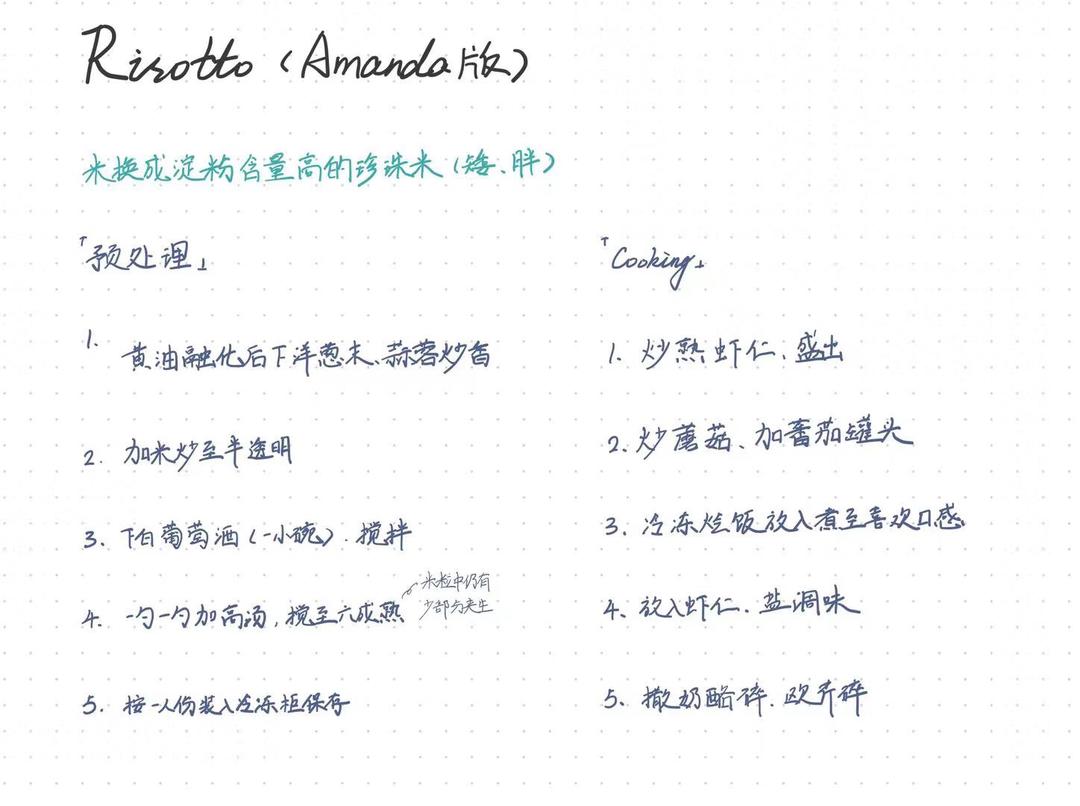 Risotto（Amanda版）
米换成淀粉含量高的珍珠米（矮、胖）
「预处理」
1. 黄油融化后下洋葱末、蒜蓉炒香
2. 加米炒至半透明
3. 下白葡萄酒（一小碗）.搅拌
4. 一勺一勺加高汤，搅至六成熟
米粒中仍有
少部分夹生
5. 按一人份装入冷冻柜保存
「Cooking」
1. 炒熟虾仁、盛出
2. 炒蘑菇、加番茄罐头
3. 冷冻烩饭放入煮至喜欢口感
4、放入虾仁、盐调味
5、撒奶酪碎、欧芹碎